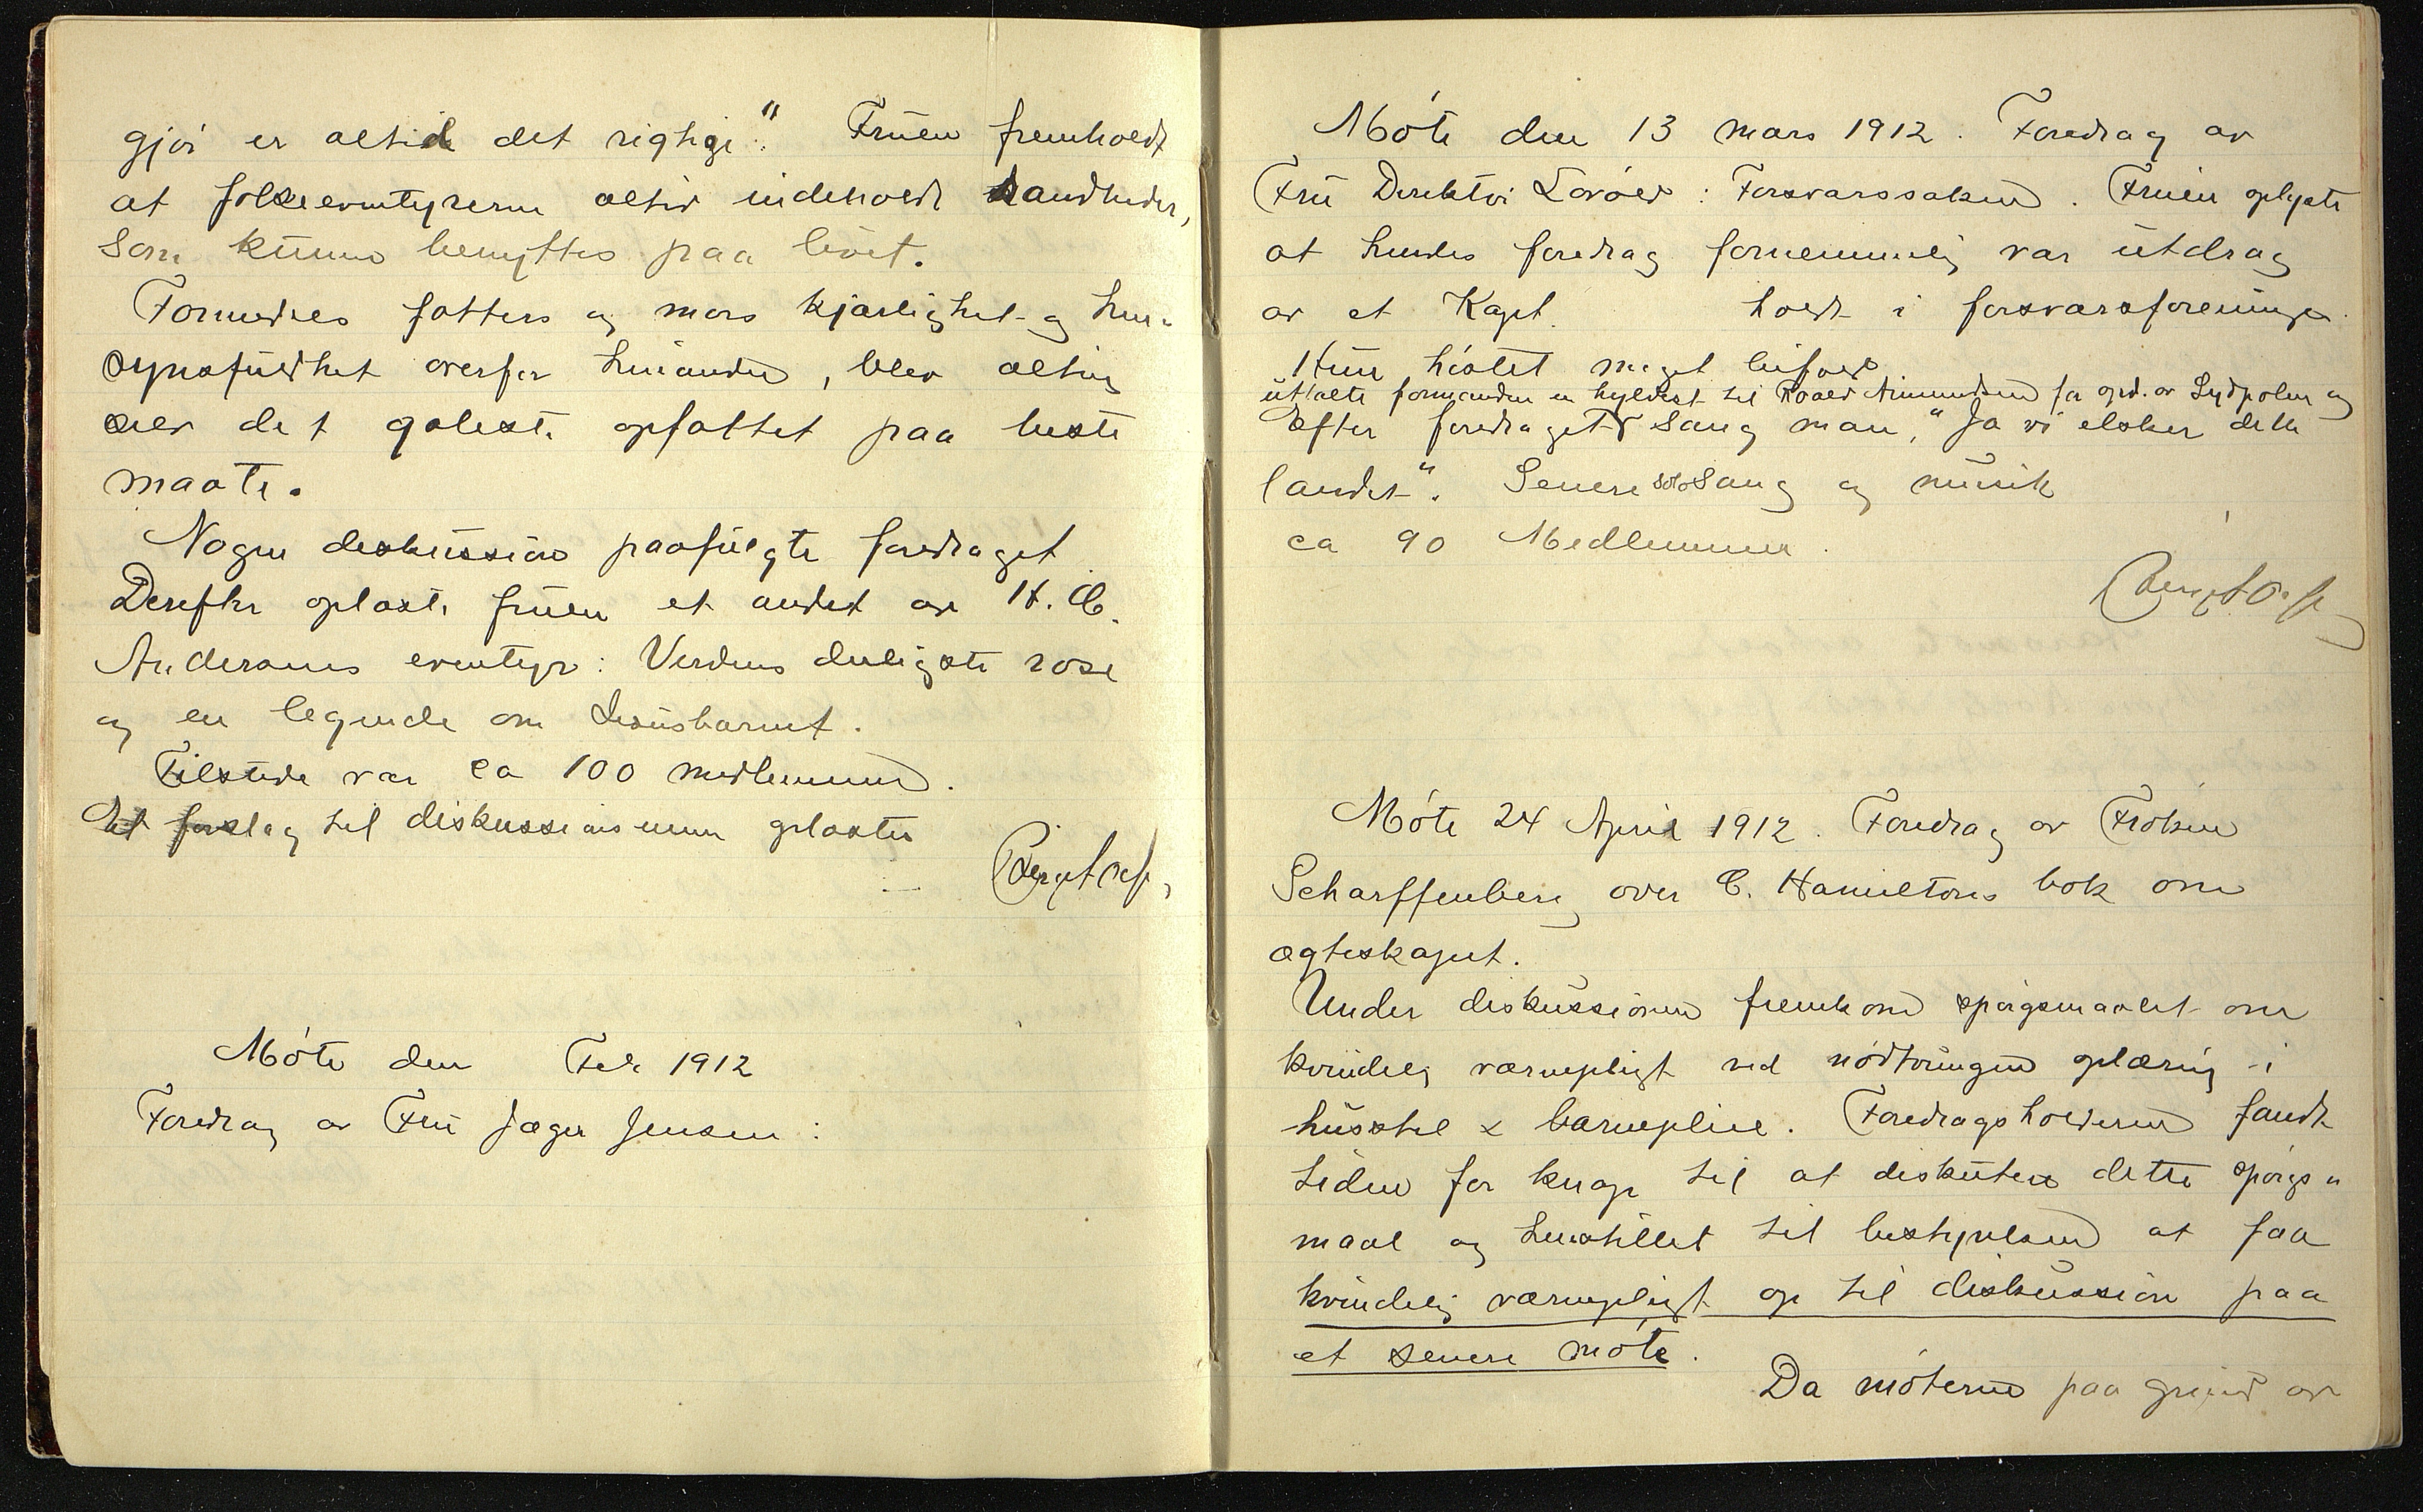 gjør er altid det rigtige". Fruen fremholdt
at folkeeventyrerne altid indeholdt sandheder,
som kunne benyttes paa livet.
Formedels fatters og mors kjærlighet og hen-
synsfuldhet overfor hinanden, blev alting
selv det galeste opfattet paa beste
maate.
Nogen diskussion paafulgte foredraget
Derefter oplæste fruen et andet av H. C.
Andersens eventyr: Verdens deiligste rose
og en legende om Jesusbarnet.
Tilstede var ca 100 medlemmer.
Et forslag til diskussionsemne oplæstes
Møte den Feb 1912
Foredrag av Fru Jæger Jensen:
Møte den 13 mars 1912. Foredrag av
Fru Direktør Lovold: Forsvarssaken. Fruen oplyste
at hendes foredrag fornemmelig var utdrag
av et Kapt. holdt i forsvarsforeningen.
Hun høstet meget bifald
uttalte formanden en hyldest til Roald Amundsen for opd. av Sydpolen og
Efter foredraget sang man, "Ja vi elsker dette
landet". Senere solosang og musik
ca 90 Medlemmer.
Møte 24 April 1912. Foredrag av Frøken
Scharffenberg over C. Hamiltons bok om
ægteskapet.
Under diskussionen fremkom spørgsmaalet om
kvindelig værnepligt ved nødtvungen oplæring i
husstel & barnepleie. Foredragsholderen fandt
tiden for knap til at diskutere dette spørgs-
maal og henstillet til bestyrelsen at faa
kvindelig værnepligt op til diskussion paa
et senere møte.
Da møterne paa grund av